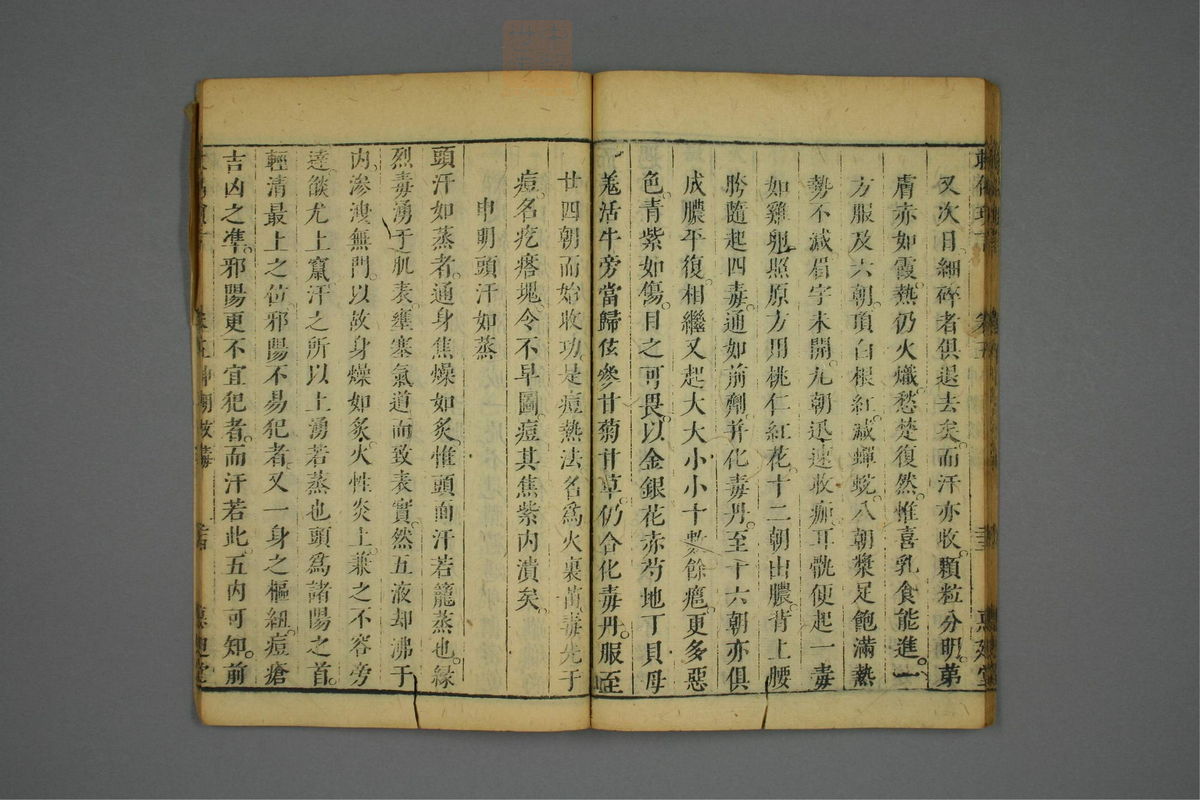 又次日細碎者俱退去矣。而汗亦收。顆粒分明。第
膚赤如霞。熱仍火熾。愁楚復然。惟喜乳食能進。一
方服及六朝。項白根紅。減蟬蛻。八朝漿足飽滿。熱
勢不減。眉宇未開。九朝迅速收痂。耳骩便起一毒
如雞卵。照原方用桃仁紅花。十二朝出膿。背上腰
胯隨起四毒。通如前劑并化毒丹。至十六朝亦俱
成膿平復。相繼又起大大小小十數餘癋。更多惡
色。青紫如傷。目之可畏。以金銀花赤芍地丁貝母
羗活牛旁當歸伭參甘菊甘草。仍合化毒丹。服至
廿四朝而始收功。是痘熱法名為火裏苗。毒先于
痘。名疙瘩塊。令不早圖。痘其焦紫內潰矣。
申明頭汗如蒸
頭汗如蒸者。通身焦燥如炙。惟頭面汗若籠蒸也。緣
烈毒湧于肌表。壅塞氣道而致表實。然五液却沸于
內。滲洩無門。以故身燥如炙。火性炎上。兼之不容旁
達。燄尤上竄。汗之所以上湧若蒸也。頭為諸陽之首。
輕清最上之位。邪陽不易犯者。又一身之樞紐。痘瘡
吉凶之準。邪陽更不宜犯者。而汗若此。五內可知。前